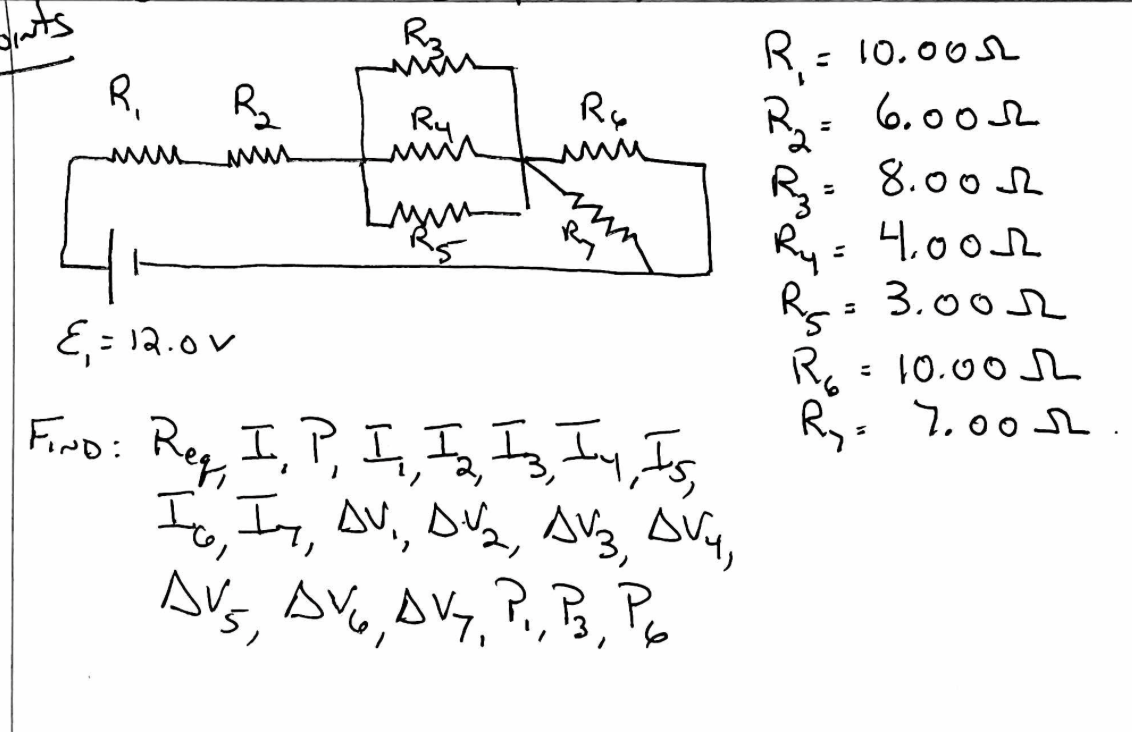 R₃
R₁ R₂ R₄ R₆
R₅ R₇
ε₁ = 12.0 V
R₁ = 10.00 Ω
R₂ = 6.00 Ω
R₃ = 8.00 Ω
R₄ = 4.00 Ω
R₅ = 3.00 Ω
R₆ = 10.00 Ω
R₇ = 7.00 Ω.
FIND: Req, I, P, I₁, I₂, I₃, I₄, I₅,
I₆, I₇, ΔV₁, ΔV₂, ΔV₃, ΔV₄,
ΔV₅, ΔV₆, ΔV₇, P₁, P₃, P₆